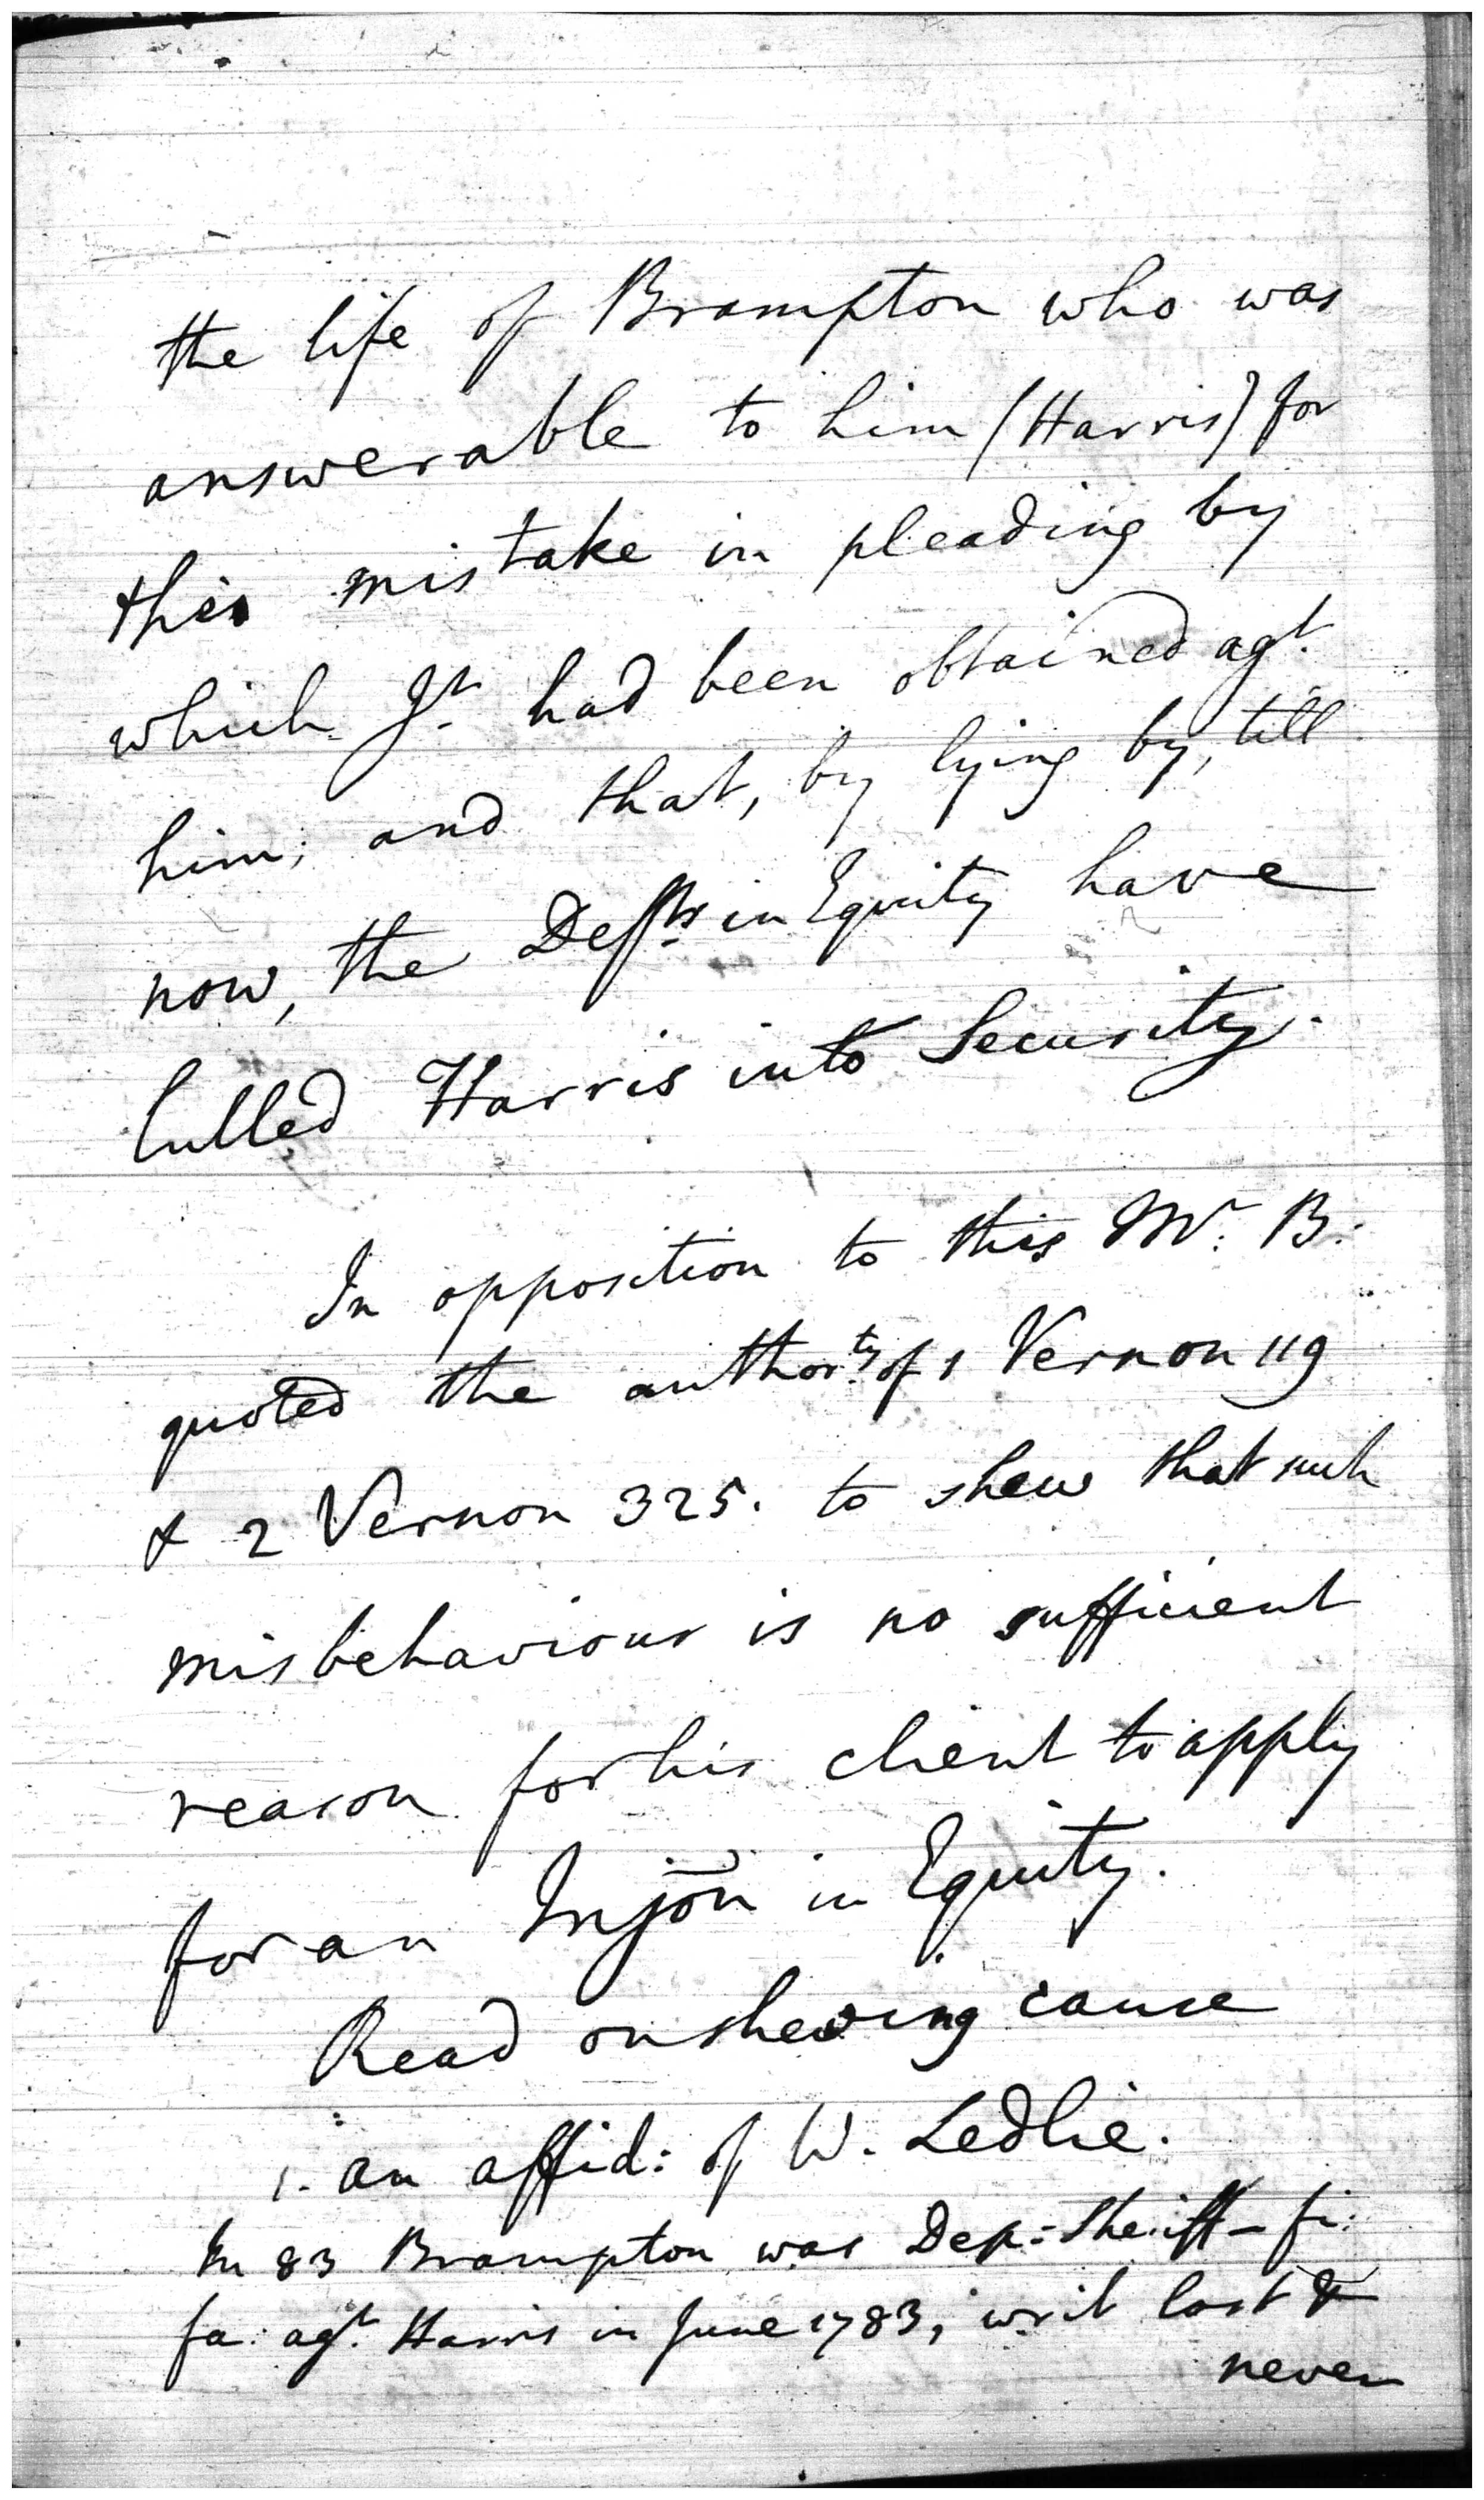 the life of Brampton who was
answerable to him (Harris) for
this mistake in pleading by
which Jt. had been obtained agt.
him; and that, by lying by, till
now, the Defts. in Equity have
lulled Harris into Security.
In opposition to this Mr. B.
quoted the authorty. of 1 Vernon 119
& 2 Vernon 325. to shew that such
misbehaviour is no sufficient
reason for his client to apply
for an Injon in Equity.
Read on shewing cause
1. an affid: of W. Ledlie.
In 83 Brampton was Dep: Sheriff - fi:
fa: agt. Harris in June 1783, writ lost &
never